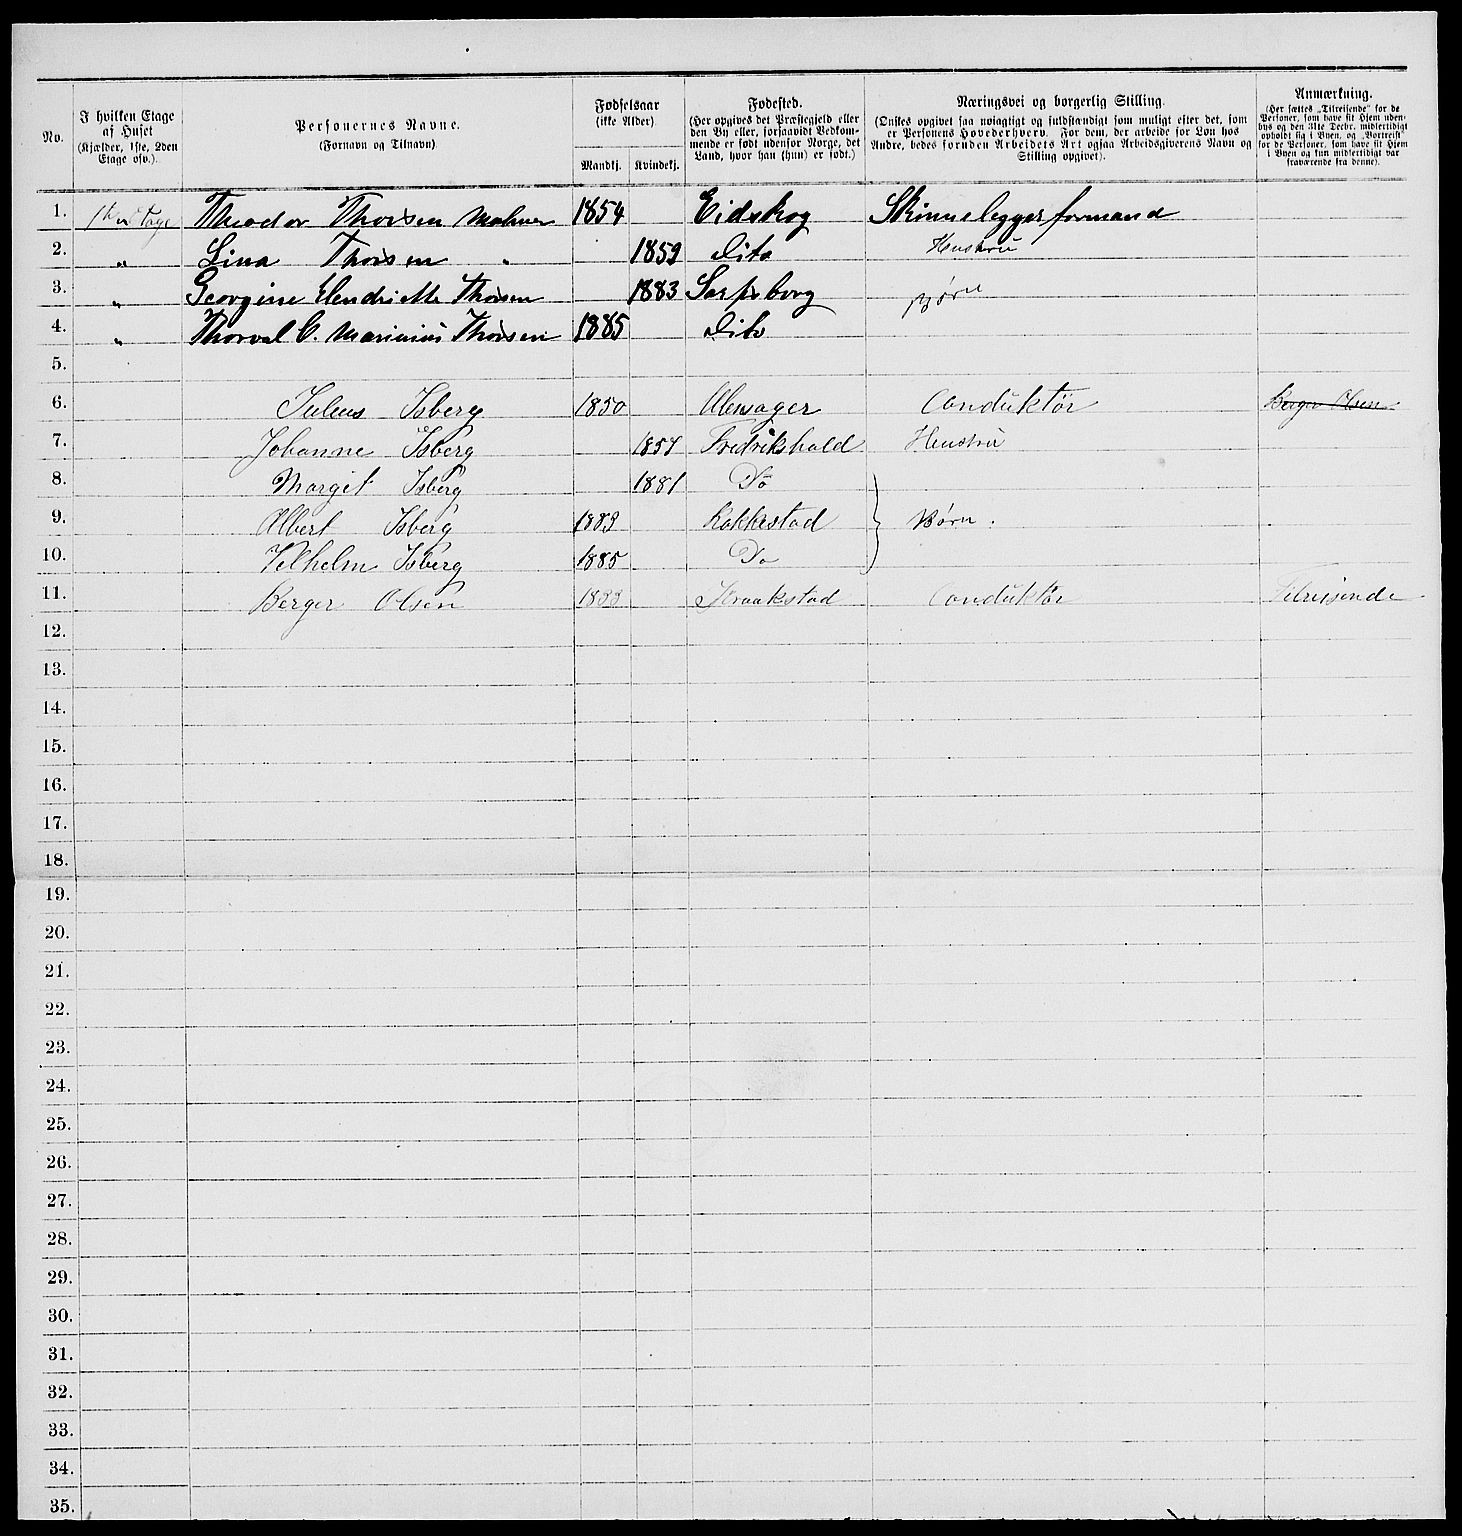 No.
I hvilken Etage
af Huset
(Kjælder, 1ste, 2den
Etage osv.).
Personernes Navne.
(Fornavn og Tilnavn)
Fødselsaar
(ikke Alder).
Mandkj. Kvindekj.
Fødested.
(Her opgives det Præstegjeld eller
den By eller, forsaavidt Vedkom-
mende er født udenfor Norge, det
Land, hvor han (hun) er født.)
Næringsvei og borgerlig Stilling.
(Ønskes opgivet saa nøiagtigt og fuldstændigt som muligt efter det, som
er Personens Hovederhverv. For dem, der arbeide for Løn hos
Andre, bedes foruden Arbeidets Art ogsaa Arbeidsgiverens Navn og
Stilling opgivet).
Anmærkning.
(Her sættes „Tilreisende" for de
Personer, som have sit Hjem uden-
bys og den 31te Decbr. midlertidigt
opholdt sig i Byen, og „Bortreist"
for de Personer, som have sit Hjem
i Byen og kun midlertidigt var
fraværende fra denne).
1. 1ste Etage Theodor Thorsen 1854 Eidskog Skinnelæggerformand
2. " Lina Thorsen " 1859 Dito Hustru
3. " Georgine Hendriette Thorsen 1883 Sarpsborg Børn
4. " Thorval C. Marinius Thorsen 1885 Dito
5.
6. Julius Isberg 1850 Ulensager Conduktør Berger Olsen
7. Johanne Isberg 1857 Fredrikshald Hustru
8. Margit Isberg 1881 Do
9. Albert Isberg 1883 Rakkestad Børn.
10. Vilhelm Isberg 1885 Do
11. Berger Olsen Kraakstad Conduktør Tilreisende
12.
13.
14.
15.
16.
17.
18.
19.
20.
21.
22.
23.
24.
25.
26.
27.
28.
29.
30.
31.
32.
33.
34.
35.